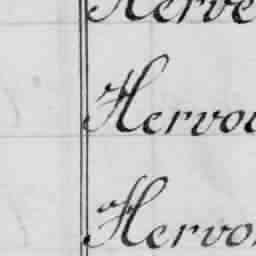 Herve
Hervou
Hervo